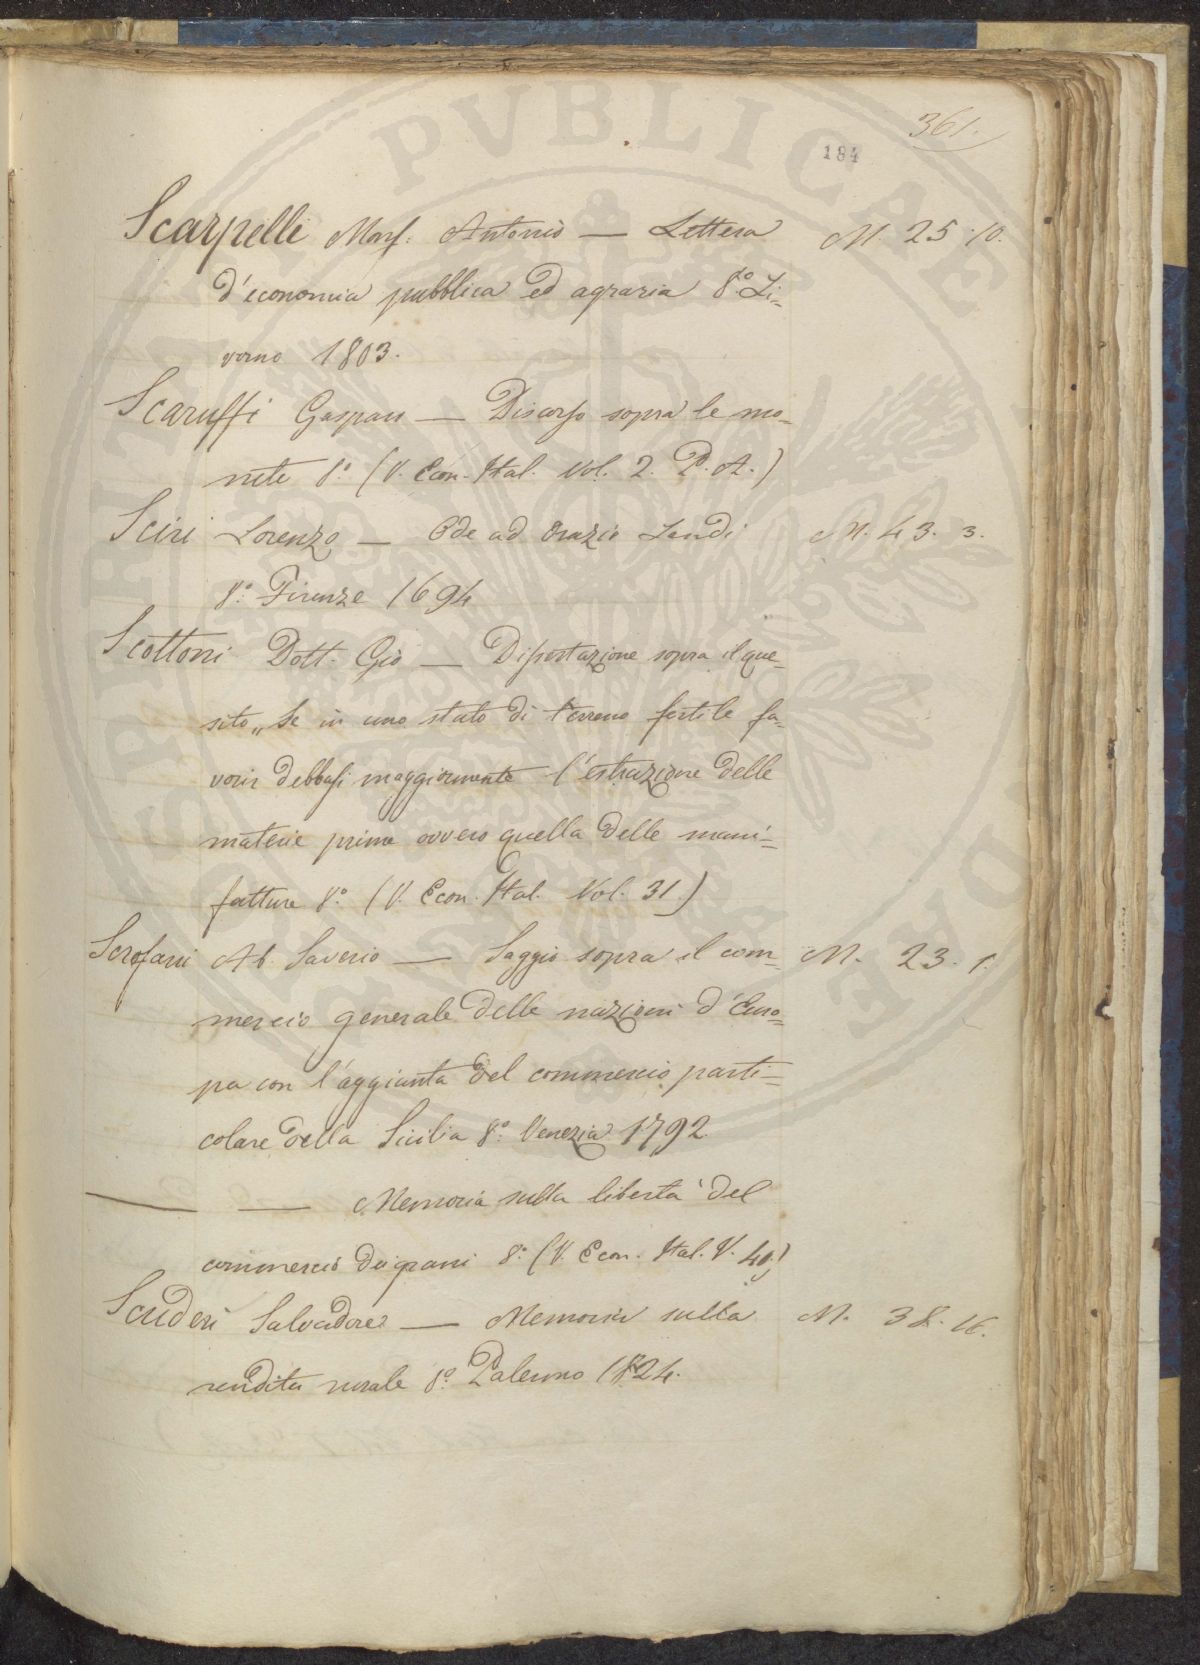 361.
184
Scarpelli Mons: Antonio — Lettera M. 25. 10.
d'economia pubblica ed agraria 8.° Li=
vorno 1803.
Scaruffi Gaspare — Discorso sopra le mo=
nete 8.° (V. Econ. Ital. Vol. 2. P. A.)
Sciri Lorenzo — Ode ad Orazio Landi M. 43. 3.
8.° Firenze 1694
Scottoni Dott. Gio — Dissertazione sopra il que=
sito „ Se in uno stato di terreno fertile fa=
vorir debbasi maggiormente l'estrazione delle
materie prime ovvero quella delle mani=
fatture 8.° (V. Econ. Ital. Vol. 31.)
Scrofani Ab. Saverio — Saggio sopra il com= M. 23. 1.
mercio generale delle nazioni d'Euro=
pa con l'aggiunta del commercio parti=
colare della Sicilia 8.° Venezia 1792.
— — Memoria sulla libertà del
commercio dei grani 8.° (V. Econ. Ital. V. 40.)
Scuderi Salvadore — Memoria sulla M. 38. 16.
rendita rurale 8.° Palermo 1824.
PVBLICAE